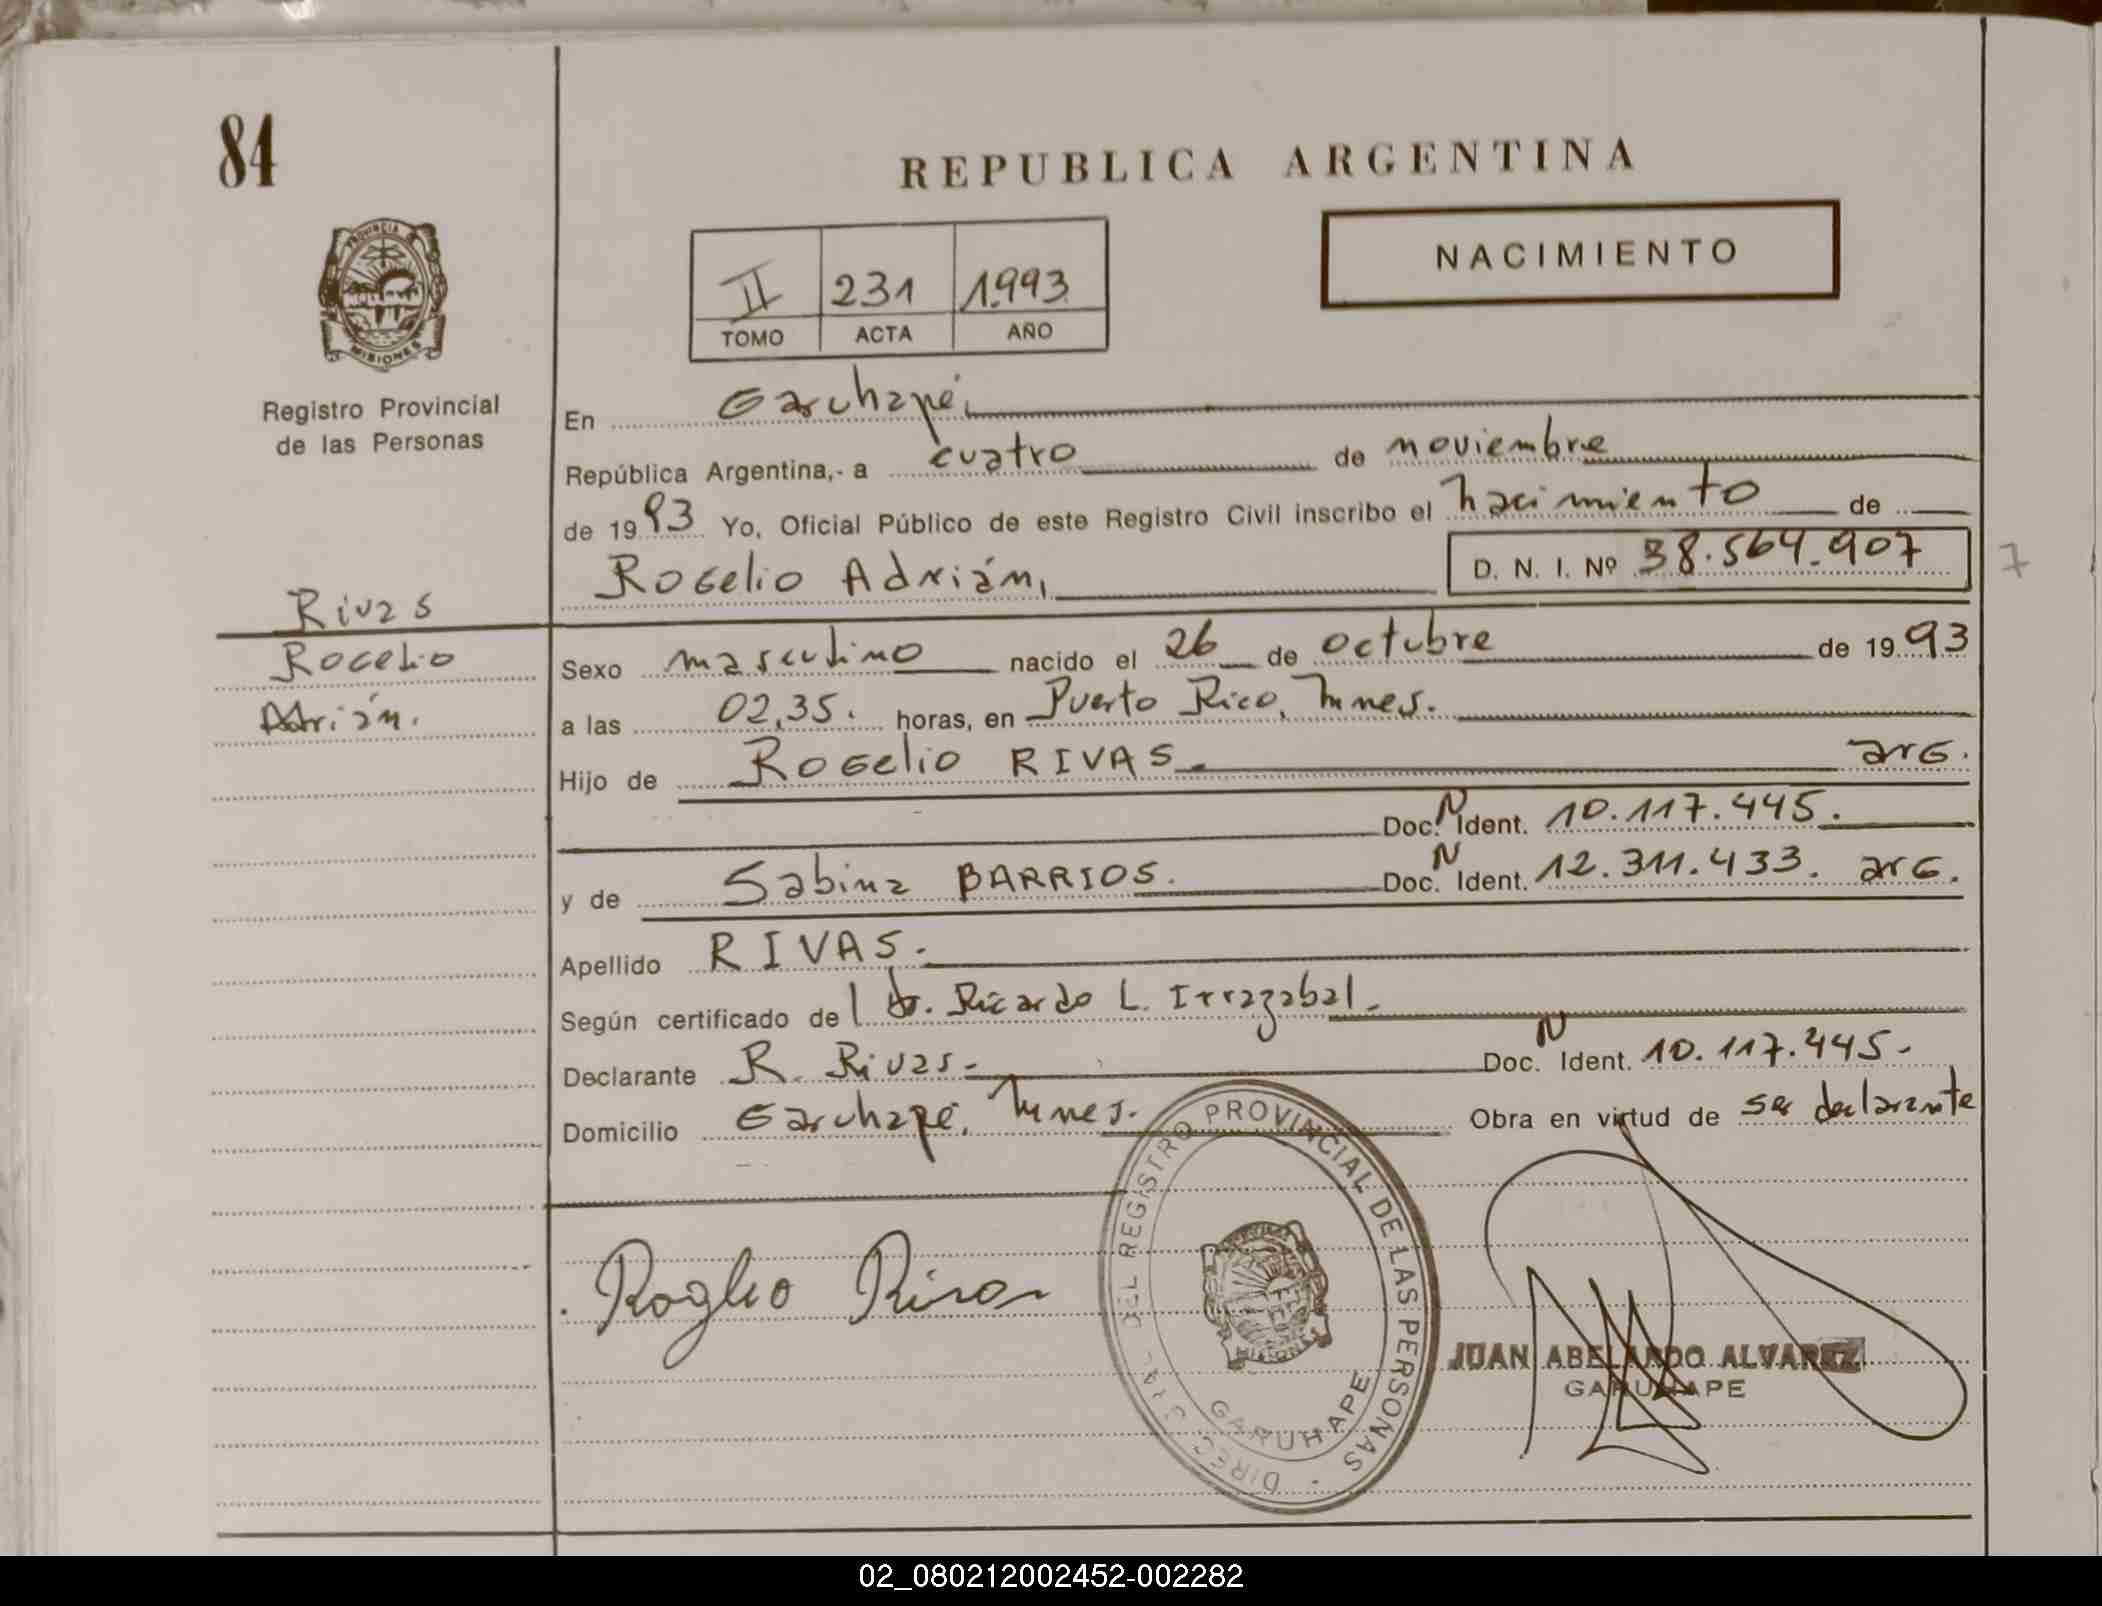 84
REPUBLICA ARGENTINA
NACIMIENTO
II 231 1993
TOMO ACTA AÑO
PROVINCIA
MISIONES
Registro Provincial
de las Personas
En Garuhapé,
República Argentina,- a cuatro de noviembre
de 1993 Yo, Oficial Público de este Registro Civil inscribo el nacimiento de
Rogelio Adrián, D. N. I. Nº 38.564.907
7
Rivas
Rogelio
Adrián.
Sexo masculino nacido el 26 de octubre de 1993
a las 02,35. horas, en Puerto Rico, Mnes.
Hijo de Rogelio RIVAS arg.
Doc. N Ident. 10.117.445.
y de Sabina BARRIOS. Doc. N Ident. 12.311.433. arg.
Apellido RIVAS.
Según certificado del dr. Ricardo L. Irrazabal.
Declarante R. Rivas Doc. N Ident. 10.117.445.-
Domicilio Garuhapé, Mnes. Obra en virtud de ser declarante
Roglio Rivas
DEL REGISTRO PROVINCIAL DE LAS PERSONAS
GARUHAPE
JUAN ABELARDO ALVAREZ
GARUHAPE
02_080212002452-002282